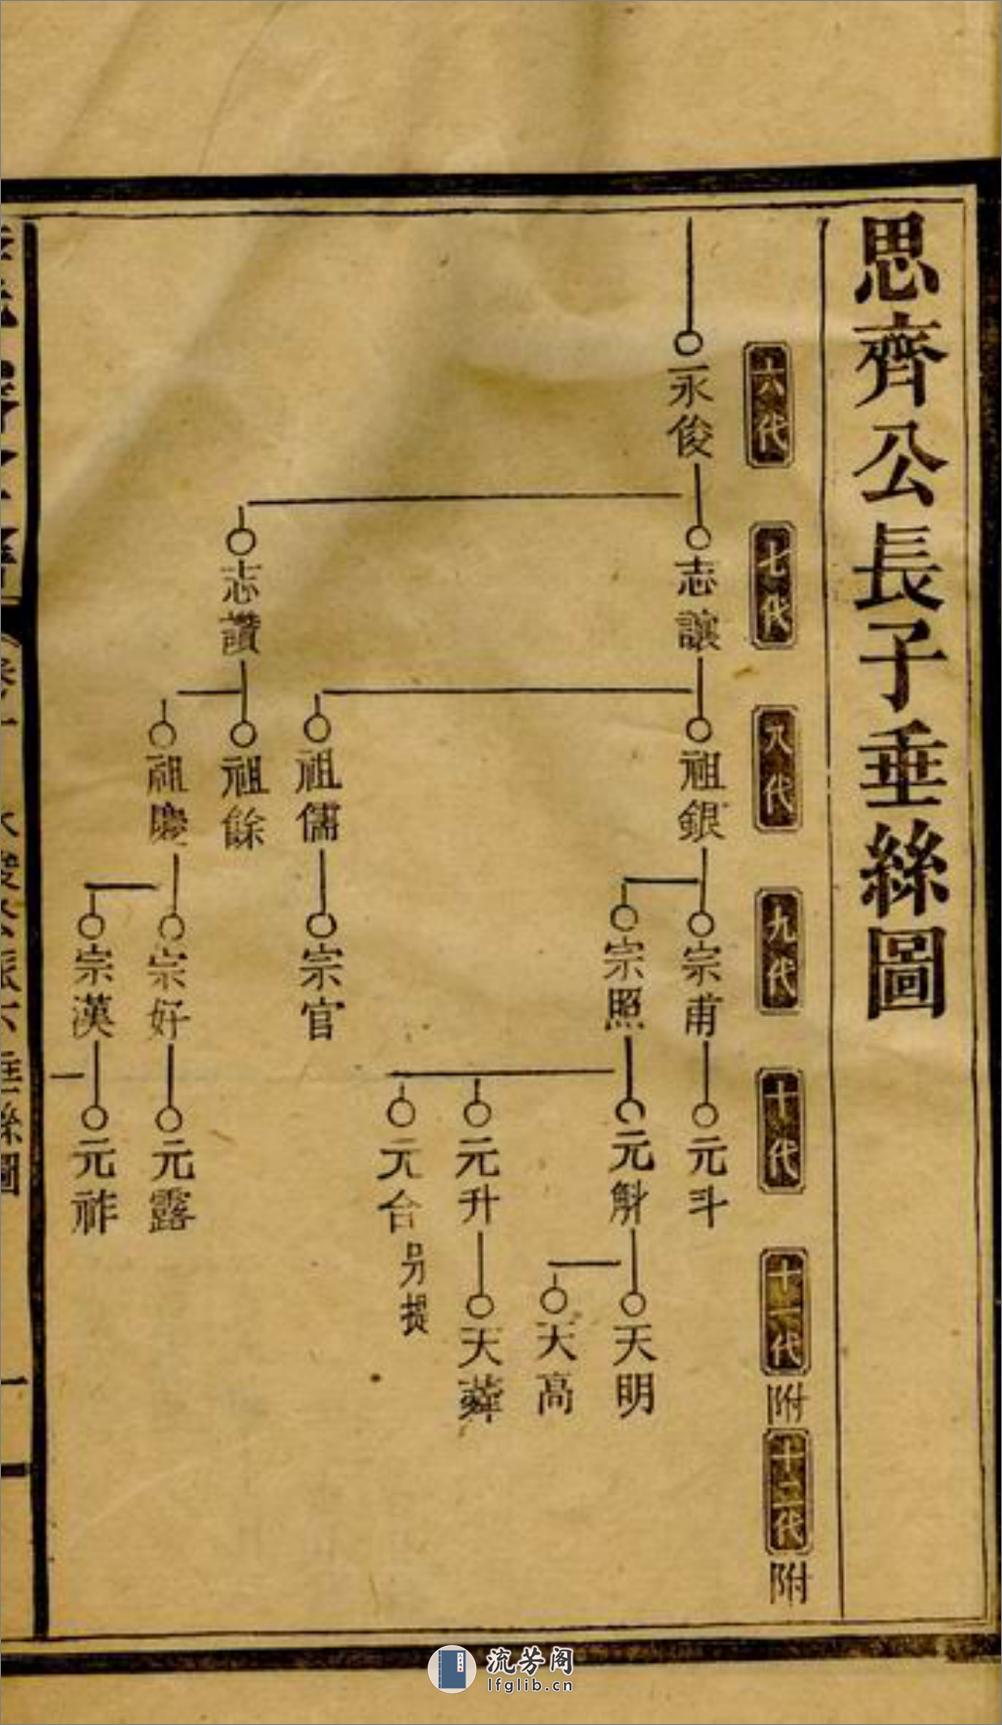 思齊公長子垂絲圖
六代
七代
八代
九代
十代
十一代
附
十二代
附
永俊
志讓
志讚
祖銀
祖儒
祖餘
祖慶
宗甫
宗照
宗官
宗好
宗漢
元斗
元斛
元升
元台
另提
元露
元祚
天明
天高
天
流芳阁
lfglib.cn